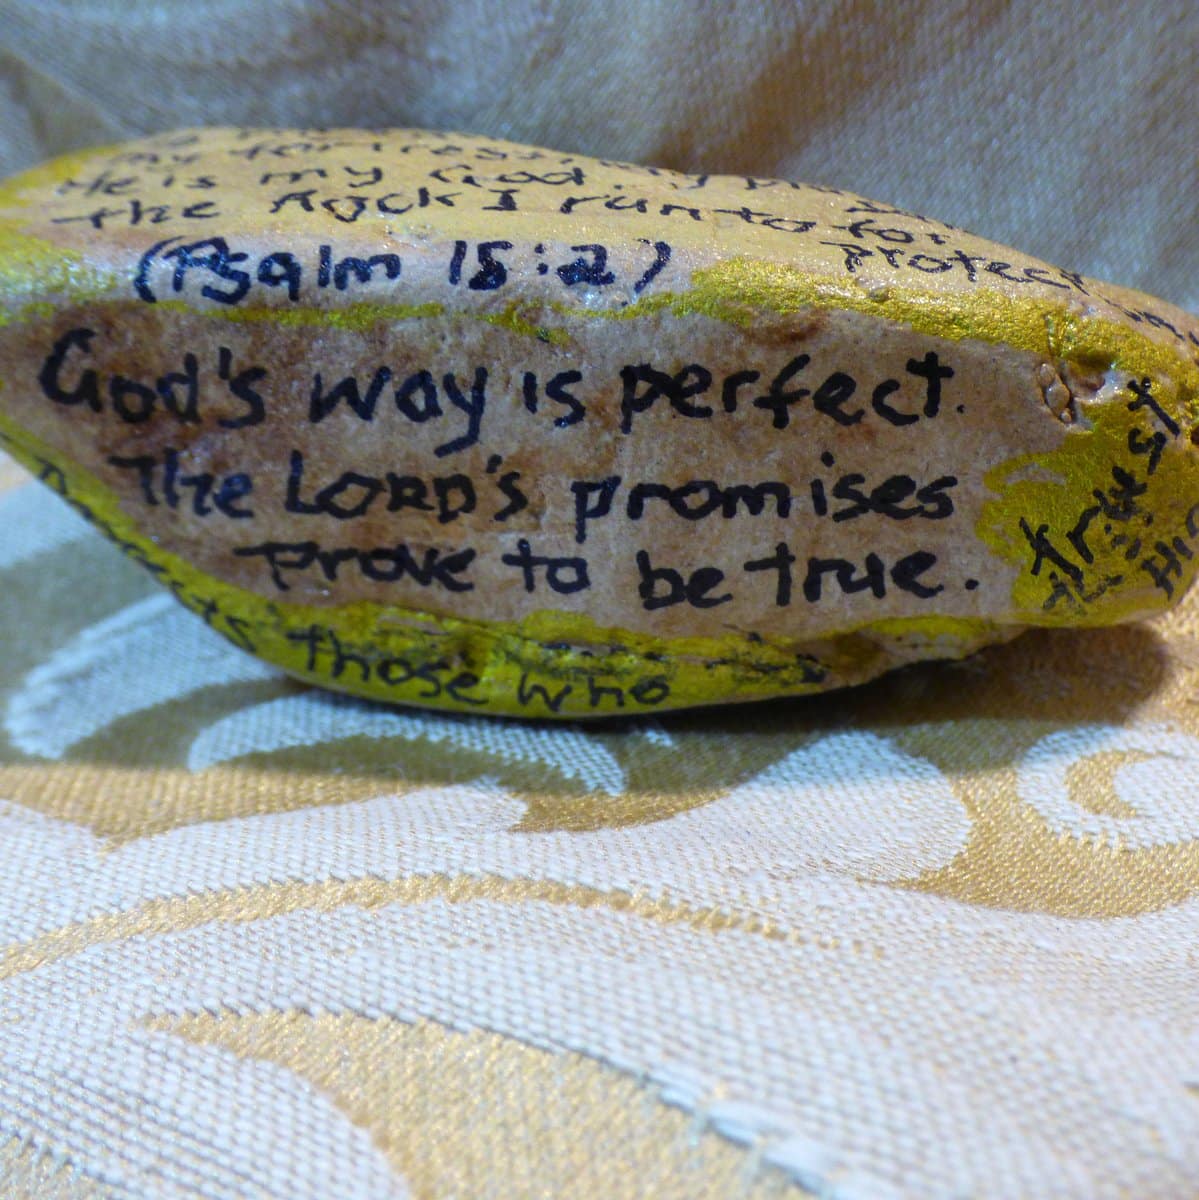 my fortress, my pla
He is my God,
the Rock I run to for
protect
(Psalm 18:2)
God's way is perfect.
The LORD'S promises
prove to be true.
those who
trust